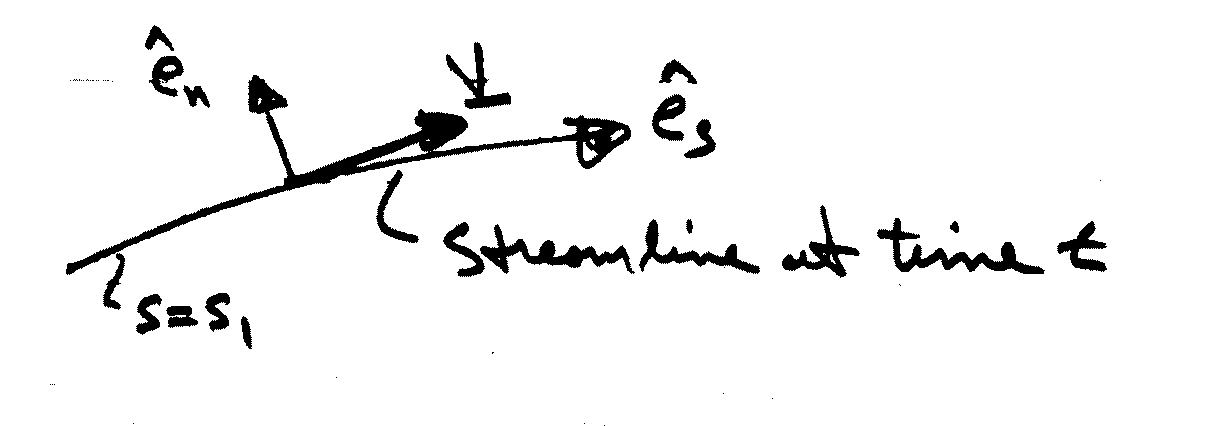 ê_n V ê_s
streamline at time t
s=s_1